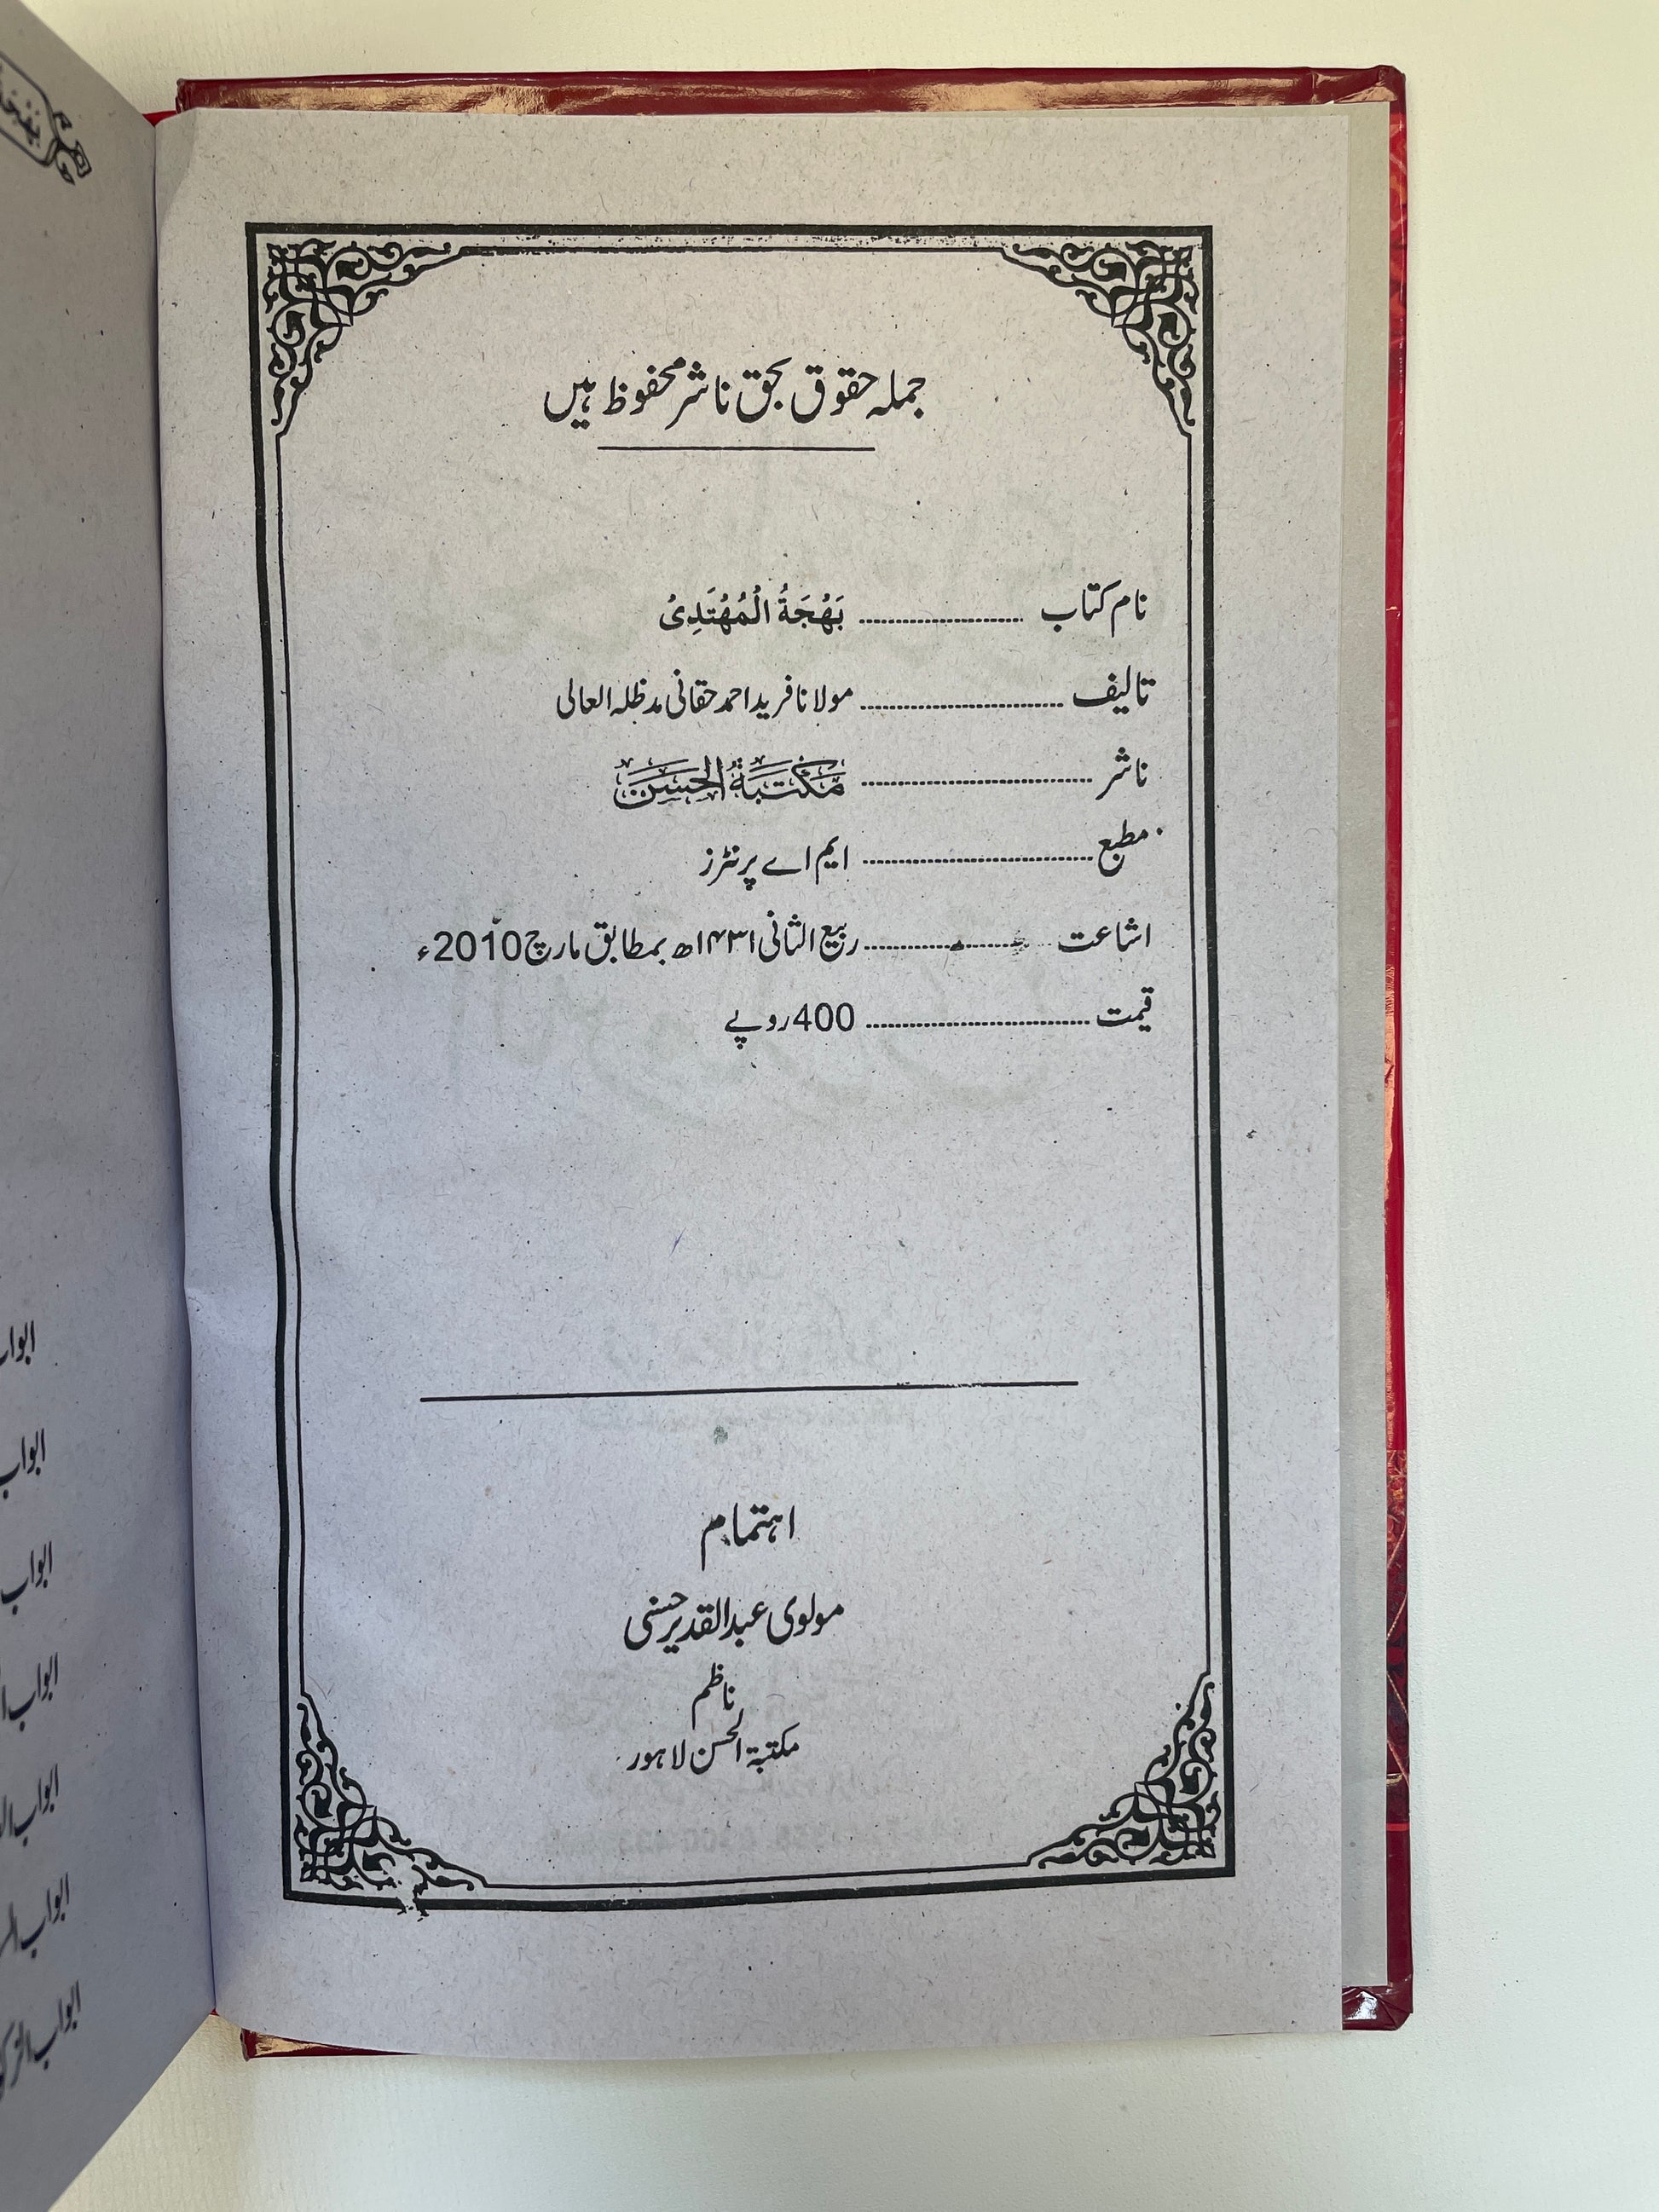 جملہ حقوق بحق ناشر محفوظ ہیں
نام کتاب ........................ بَهْجَةُ الْمُهْتَدِيْ
تالیف ........................ مولانا فرید احمد حقانی مدظلہ العالی
ناشر ........................ مَكْتَبَةُ الْحَسَنْ
مطبع ........................ ایم اے پرنٹرز
اشاعت ........................ ربیع الثانی ۱۴۳۱ھ بمطابق مارچ 2010ء
قیمت ........................ 400 روپے
اہتمام
مولوی عبدالقدیر حسنی
ناظم
مکتبۃ الحسن لاہور
ابواب
ابواب
ابواب